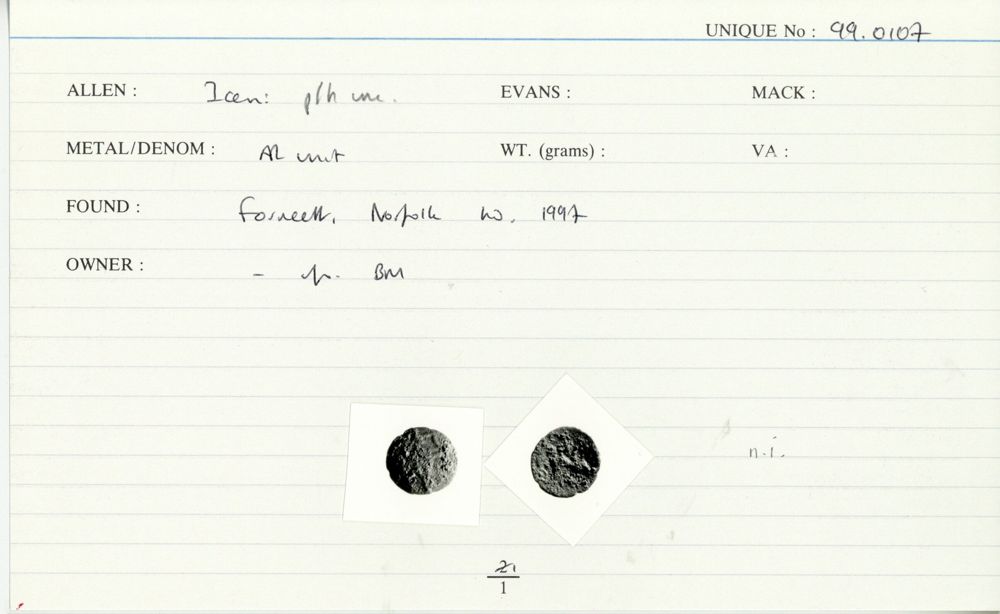 UNIQUE No : 99.0107
ALLEN : Iceni p/h unc. EVANS : MACK :
METAL/DENOM : AR unit WT. (grams) : VA :
FOUND : Forncett, Norfolk 1997
OWNER : - BM
n.i.
21
1